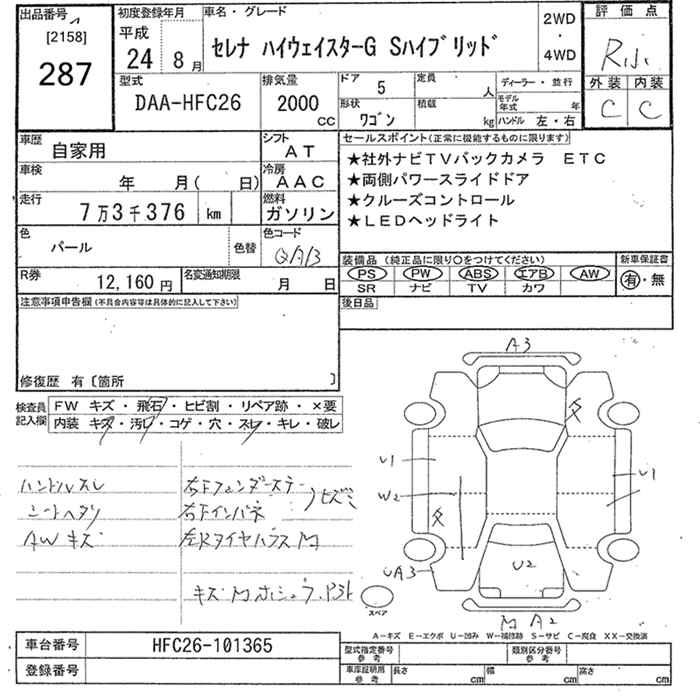 出品番号
[2158]
287
初度登録年月
平成
24 8月
車名・グレード
セレナ ハイウェイスターG Sハイブリッド
2WD
・
4WD
評価点
外装 内装
C C
型式
DAA-HFC26
排気量
2000
CC
ドア
5
形状
ワゴン
定員
人
積載
kg
ディーラー・並行
モデル年式 年
ハンドル 左・右
車歴
自家用
シフト
AT
車検
年 月( 日)
冷房
AAC
走行
7万3千376 km
燃料
ガソリン
色
パール
色替
色コード
QAB
R券
12,160円
名変通知期限
月 日
セールスポイント(正常に機能するものに限ります)
★社外ナビTVバックカメラ ETC
★両側パワースライドドア
★クルーズコントロール
★LEDヘッドライト
装備品(純正品に限り○をつけてください)
PS PW ABS エアB AW
SR ナビ TV カワ
新車保証書
有・無
後日品
注意事項申告欄(不具合内容等は具体的に記入して下さい)
修復歴 有〔箇所 〕
検査員
記入欄
FW キズ・飛石・ヒビ割・リペア跡・×要
内装 キズ・汚レ・コゲ・穴・スレ・キレ・破レ
ハンドルスレ
シートヘタリ
AWキズ
右Fフェンダーステー
右Fインパネ
左Rタイヤハウス M
A3
U1
W2
U1
UA3
U2
M A2
スペア
A-キズ E-エクボ U-凹み W-補修跡 S-サビ C-腐食 XX-交換済
車台番号
HFC26-101365
登録番号
型式指定番号
参考
類別区分番号
参考
車庫証明用
参考
長さ cm
幅 cm
高さ cm